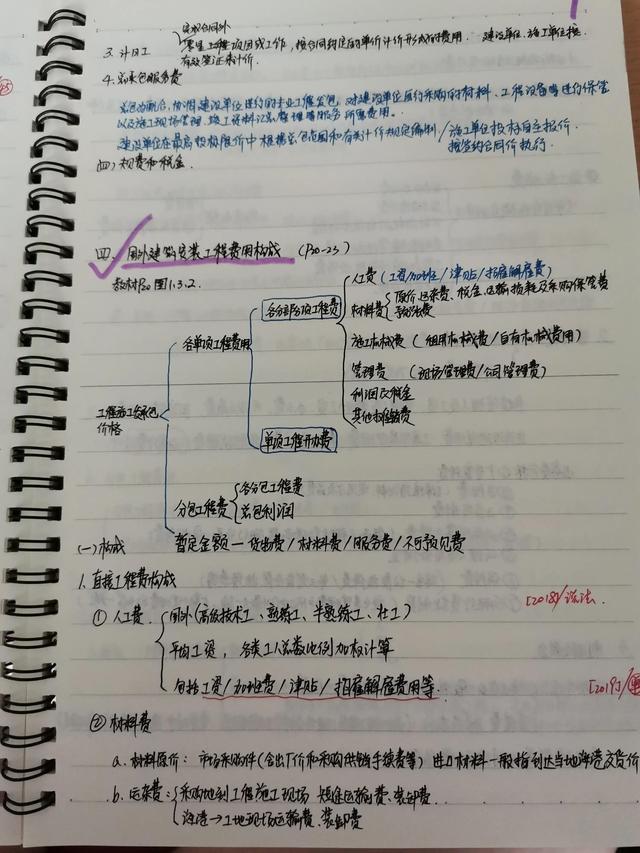 实施合同外
3. 计日工 零星工程项目或工作，按合同约定的单价计价形成的费用. 建设单位、施工单位按
有效签证来计价.
4. 总承包服务费
总包为配合、协调建设单位进行的专业工程发包，对建设单位自行采购的材料、工程设备等进行保管
以及施工现场管理、竣工资料汇总整理等服务所需费用。
建设单位在最高投标限价中根据总包范围和有关计价规定编制/施工单位投标自主报价.
按签约合同价执行.
(四) 规费和税金.
四、国外建筑安装工程费用构成 (P20-23)
教材P20 图1.3.2.
人工费 (工资/加班/津贴/招雇解雇费)
各分部分项工程费
材料费 原价、运杂费、税金、运输损耗及采购保管费
预涨费
各单项工程费用
施工机械费 (租用机械费/自有机械费用)
管理费 (现场管理费/公司管理费)
利润及税金
工程施工发承包
价格
其他摊销费
单项工程开办费
分包工程费 各分包工程费
总包利润
暂定金额—货物费/材料费/服务费/不可预见费
(一) 构成
1. 直接工程费构成
[2018]/说法.
① 人工费 国外(高级技术工、熟练工、半熟练工、壮工)
平均工资，各类工人总数比例加权计算
包括工资/加班费/津贴/招雇解雇费用等.
[2019]/
② 材料费
a. 材料原价: 市场采购件(含出厂价和采购供销手续费等) 进口材料一般指到达当地海港交货价
b. 运杂费: 采购地到工程施工现场 短途运输费、装卸费.
海港→工地现场运输费、装卸费